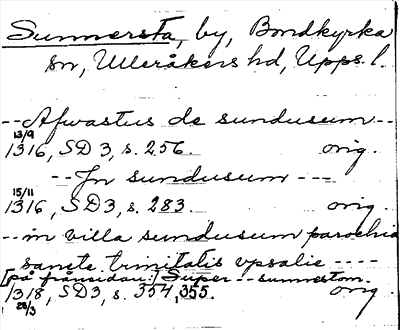 Sunnersta, by, Bondkyrka
sn, Ulleråkers hd, Upps. l.
-- Afvastus de sundusum --
13/9
1316, SD 3, s. 256. orig.
-- Jn sundusum ---
15/11
1316, SD 3, s. 283. orig.
-- in villa sundusum parochia
sancte trinitatis vpsalie ----
[på frånsidan: Super -- sunnerstom.
1318, SD 3, s. 354, 355. orig.
28/3